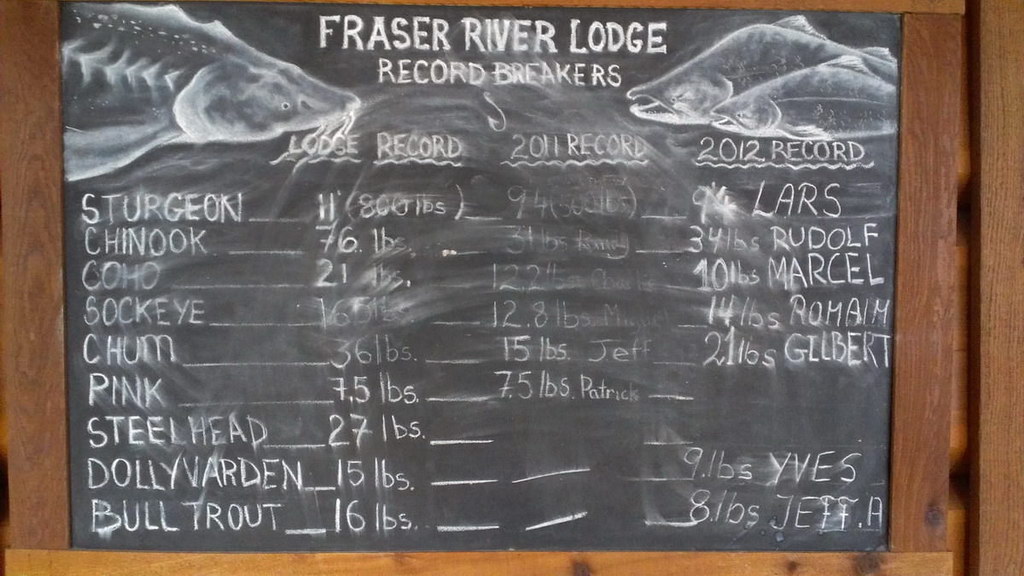 FRASER RIVER LODGE
RECORD BREAKERS
LODGE RECORD 2011 RECORD 2012 RECORD
STURGEON 11' (800 lbs) 9'4 LARS
CHINOOK 76 lbs. 31 lbs 34 lbs RUDOLF
COHO 21 lbs. 12.2 10 lbs MARCEL
SOCKEYE 12.8 lbs 14 lbs ROMAIM
CHUM 36 lbs. 15 lbs. Jeff 21 lbs GILBERT
PINK 7.5 lbs. 7.5 lbs. Patrick
STEELHEAD 27 lbs.
DOLLYVARDEN 15 lbs. 9.lbs YVES
BULL TROUT 16 lbs. 8.lbs JEFF.A